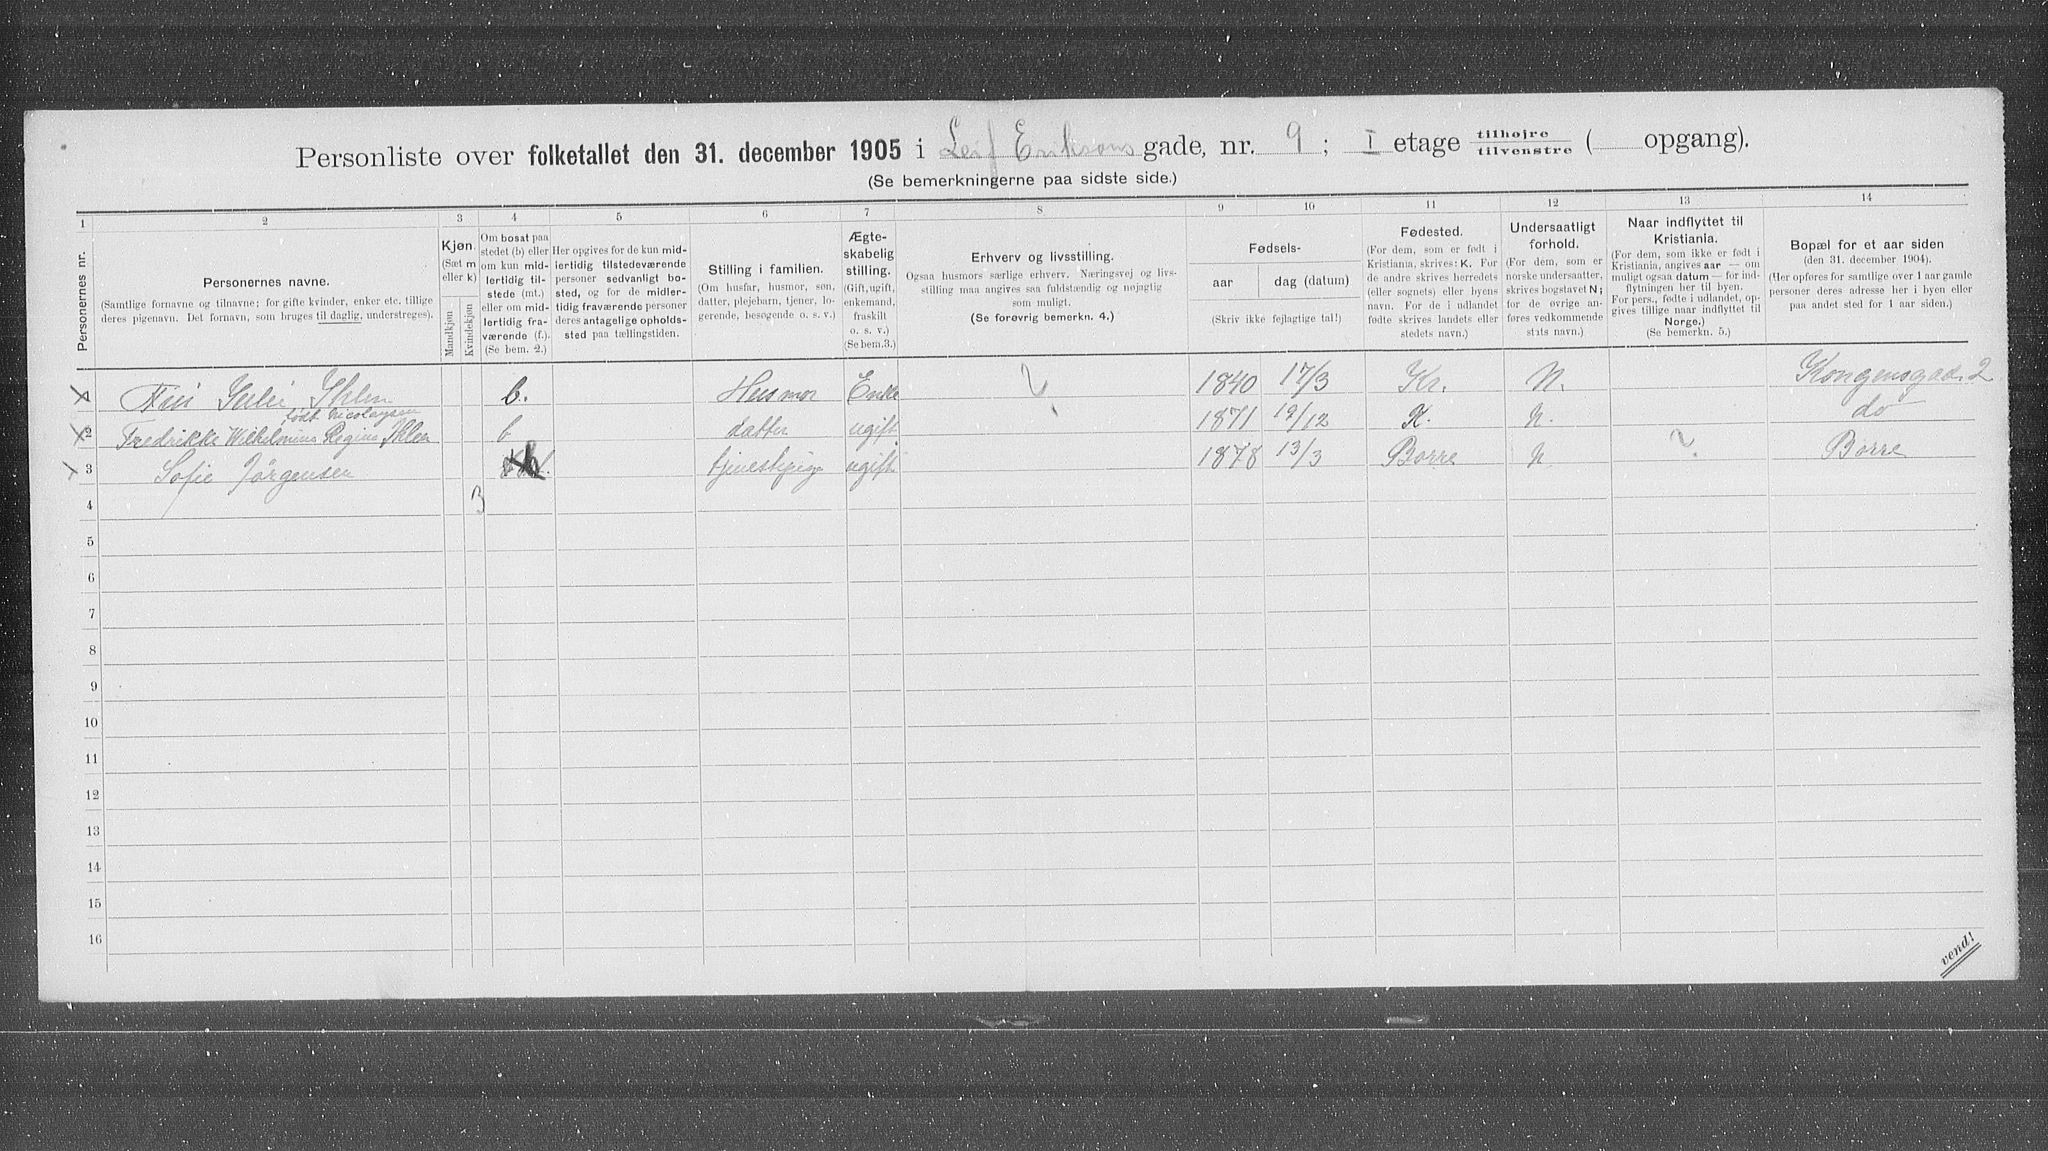 Personliste over folketallet den 31. december 1905 i Leif Eriksons gade, nr. 9 ; I etage tilhøjre / tilvenstre ( opgang).
(Se bemerkningerne paa sidste side.)
1 2 3 4 5 6 7 8 9 10 11 12 13 14
Personernes nr.
Personernes navne.
(Samtlige fornavne og tilnavne; for gifte kvinder, enker etc. tillige
deres pigenavn. Det fornavn, som bruges til daglig, understreges).
Kjøn.
(Sæt m
eller k)
Mandkjøn
Kvindekjøn
Om bosat paa
stedet (b) eller
om kun mid-
lertidig til-
stede (mt.)
eller om mid-
lertidig fra-
værende (f.).
(Se bem. 2.)
Her opgives for de kun mid-
lertidig tilstedeværende
personer sedvanligt bo-
sted, og for de midler-
tidig fraværende personer
deres antagelige opholds-
sted paa tællingstiden.
Stilling i familien.
(Om husfar, husmor, søn,
datter, plejebarn, tjener, lo-
gerende, besøgende o. s. v.)
Ægte-
skabelig
stilling.
(Gift, ugift,
enkemand,
fraskilt
o. s. v.)
(Se bem.3.)
Erhverv og livsstilling.
Ogsaa husmors særlige erhverv. Næringsvej og livs-
stilling maa angives saa fuldstændig og nøjagtig
som muligt.
(Se forøvrig bemerkn. 4.)
Fødsels-
aar
dag (datum)
(Skriv ikke fejlagtige tal!)
Fødested.
(For dem, som er født i
Kristiania, skrives: K. For
de andre skrives herredets
(eller sognets) eller byens
navn. For de i udlandet
fødte skrives landets eller
stedets navn.)
Undersaatligt
forhold.
(For dem, som er
norske undersaatter,
skrives bogstavet N;
for de øvrige an-
føres vedkommende
stats navn.)
Naar indflyttet til
Kristiania.
(For dem, som ikke er født i
Kristiania, angives aar — om
muligt ogsaa datum — for ind-
flytningen her til byen.
For pers., fødte i udlandet, op-
gives tillige naar indflyttet til
Norge.)
(Se bemerkn. 5.)
Bopæl for et aar siden
(den 31. december 1904).
(Her opføres for samtlige over 1 aar gamle
personer deres adresse her i byen eller
paa andet sted for 1 aar siden.)
Julie Ihlen b. Husmor Enke 1840 17/3 Kr. N. Kongensgad. 2
født Nicolaysen
2 Fredrikke Wilhelmine Regine Ihlen b datter ugift 1871 12/12 K. N. do
3 Sofie Jörgensen tjenestepige ugift 1878 13/3 Borre N ? Borre
4 3
5
6
7
8
9
10
11
12
13
14
15
16
vend!